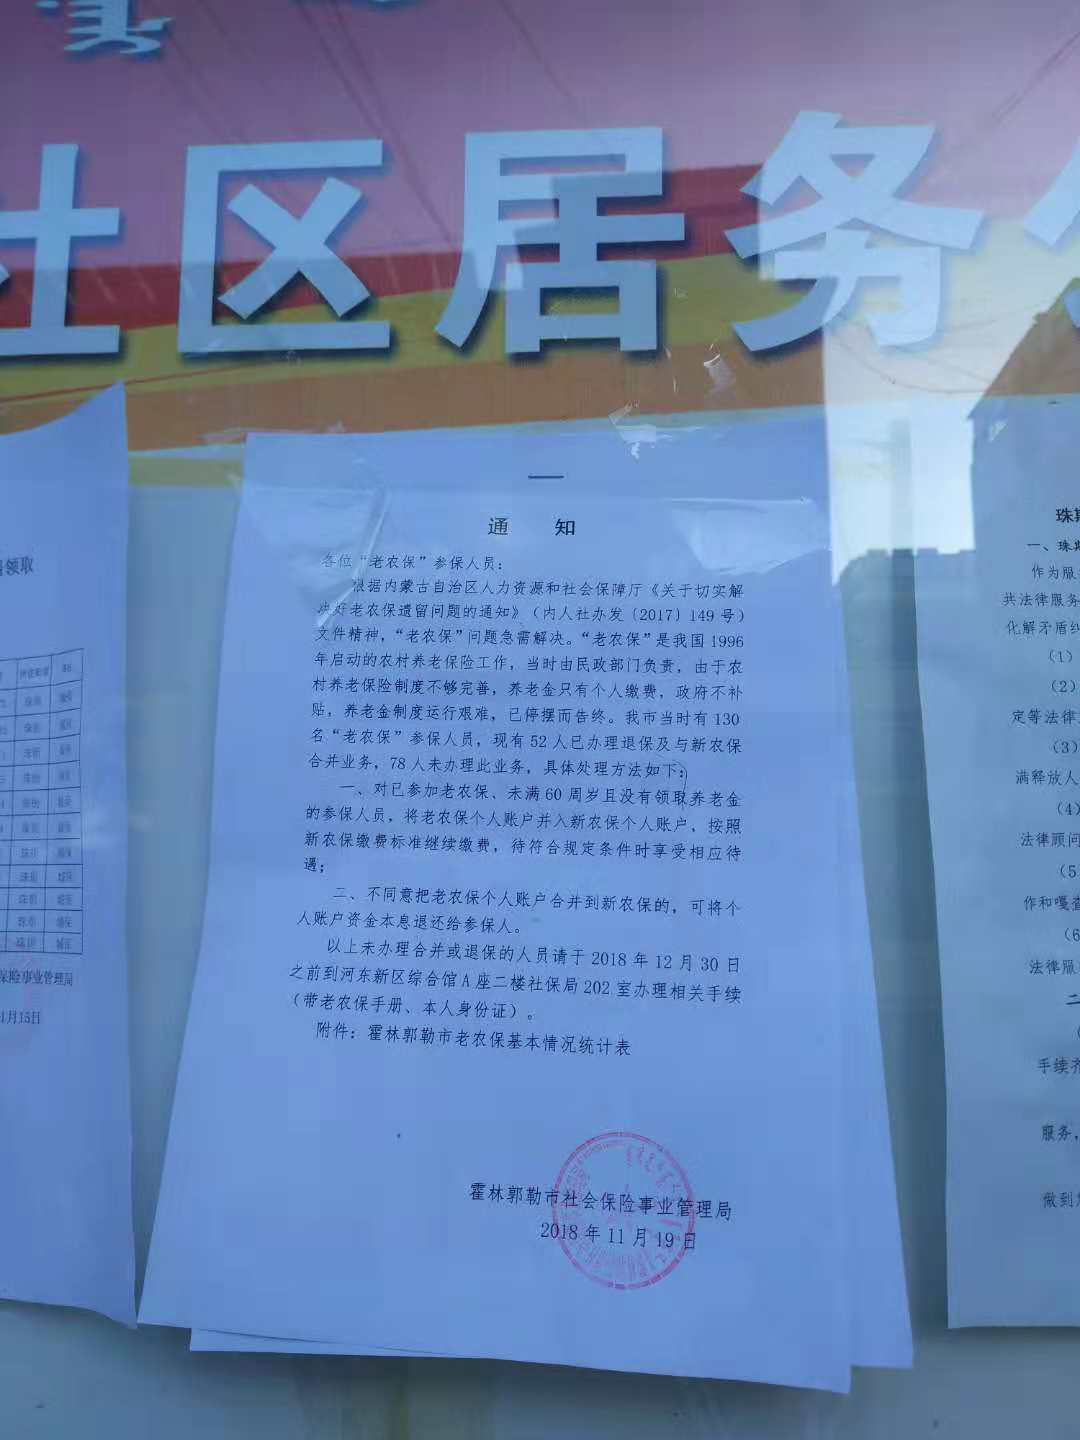 社区居务
通 知
各位“老农保”参保人员：
根据内蒙古自治区人力资源和社会保障厅《关于切实解
决好老农保遗留问题的通知》（内人社办发〔2017〕149号）
文件精神，“老农保”问题急需解决。“老农保”是我国1996
年启动的农村养老保险工作，当时由民政部门负责，由于农
村养老保险制度不够完善，养老金只有个人缴费，政府不补
贴，养老金制度运行艰难，已停摆而告终。我市当时有130
名“老农保”参保人员，现有52人已办理退保及与新农保
合并业务，78人未办理此业务，具体处理方法如下：
一、对已参加老农保、未满60周岁且没有领取养老金
的参保人员，将老农保个人账户并入新农保个人账户，按照
新农保缴费标准继续缴费，待符合规定条件时享受相应待
遇；
二、不同意把老农保个人账户合并到新农保的，可将个
人账户资金本息退还给参保人。
以上未办理合并或退保的人员请于2018年12月30日
之前到河东新区综合馆A座二楼社保局202室办理相关手续
（带老农保手册、本人身份证）。
附件：霍林郭勒市老农保基本情况统计表
霍林郭勒市社会保险事业管理局
2018年11月19日
领取
保险事业管理局
1月15日
珠斯
一、珠斯
作为服
共法律服务
化解矛盾纠
（1）
（2）
定等法律
（3）
满释放人
（4）
法律顾问
（5
作和嘎查
（6
法律服
二
手续齐
服务，
做到